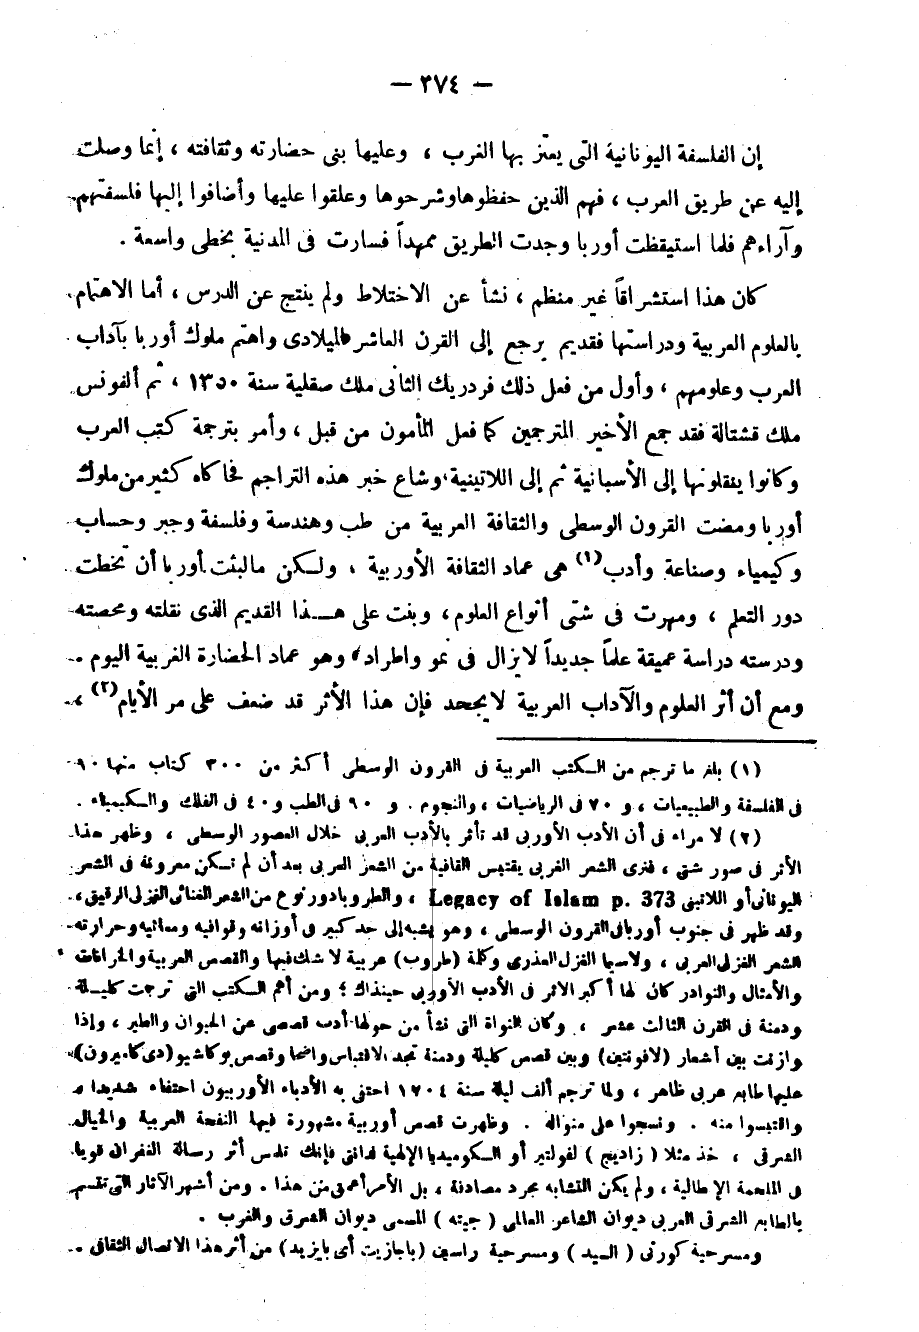 — ٣٧٤ —
إن الفلسفة اليونانية التى يعتز بها الغرب ، وعليها بنى حضارته وثقافته ، إنما وصلت
إليه عن طريق العرب ، فهم الذين حفظوها وشرحوها وعلقوا عليها وأضافوا إليها فلسفتهم
وآراءهم فلما استيقظت أوربا وجدت الطريق ممهداً فسارت فى المدنية بخطى واسعة .
كان هذا استشراقاً غير منظم ، نشأ عن الاختلاط ولم ينتج عن الدرس ، أما الاهتمام
بالعلوم العربية ودراستها فقديم يرجع إلى القرن العاشر الميلادى واهتم ملوك أوربا بآداب
العرب وعلومهم ، وأول من فعل ذلك فردريك الثانى ملك صقلية سنة ١٣٥٠ ، ثم ألفونس
ملك قشتالة فقد جمع الأخير المترجمين كما فعل المأمون من قبل ، وأمر بترجمة كتب العرب
وكانوا ينقلونها إلى الأسبانية ثم إلى اللاتينية ، وشاع خبر هذه التراجم فحاكاه كثير من ملوك
أوربا ومضت القرون الوسطى والثقافة العربية من طب وهندسة وفلسفة وجبر وحساب
وكيمياء وصناعة وأدب (١) هى عماد الثقافة الأوربية ، ولكن مالبثت أوربا أن تخطت
دور التعلم ، ومهرت فى شتى أنواع العلوم ، وبنت على هـذا القديم الذى نقلته ومحصته
ودرسته دراسة عميقة علماً جديداً لايزال فى نمو واطراد ، وهو عماد الحضارة الغربية اليوم ..
ومع أن أثر العلوم والآداب العربية لايجحد فإن هذا الأثر قد ضعف على مر الأيام (٢) ،
(١) بلغ ما ترجم من الكتب العربية فى القرون الوسطى أكثر من ٣٠٠ كتاب منها ٩٠
فى الفلسفة والطبيعيات ، و ٧٠ فى الرياضيات ، والنجوم . و ٩٠ فى الطب و ٤٠ فى الفلك والكيمياء .
(٢) لا مراء فى أن الأدب الأوربى قد تأثر بالأدب العربى خلال العصور الوسطى ، وظهر هذا
الأثر فى صور شتى ، فنرى الشعر الغربى يقتبس القافية من الشعر العربى بعد أن لم تكن معروفة فى الشعر
اليونانى أو اللاتينى Legacy of Islam p. 373 ، والطروبادور نوع من الشعر الغنائى الغزلى الرقيق ،
وقد ظهر فى جنوب أوربا فى القرون الوسطى ، وهو يشبه إلى حد كبير فى أوزانه وقوافيه ومعانيه وحرارته
الشعر الغزلى العربى ، ولاسيما الغزل العذرى وكلمة (طروب) عربية لا شك فيها والقصص العربية والخرافات
والأمثال والنوادر كان لها أكبر الاثر فى الأدب الأوربى حينذاك ؛ ومن أهم الكتب التى ترجمت كليلة
ودمنة فى القرن الثالث عشر ، وكان النواة التى نشأ من حولها أدب قصصى عن الحيوان والطير ، وإذا
وازنت بين أشعار (لافونتين) وبين قصص كليلة ودمنة تجد الاقتباس واضحا وقصص بوكاشيو (دى كاميرون)
عليها طابع عربى ظاهر ، ولما ترجم ألف ليلة سنة ١٧٠٤ احتفى به الأدباء الأوربيون احتفاء شديدا
واقتبسوا منه . ونسجوا على منواله . وظهرت قصص أوربية مشهورة فيها النفحة العربية والخيال
الشرقى ، خذ مثلا ( زاديج ) لفولتير أو الكوميديا الإلهية لدانتى فإنك تلمس أثر رسالة الغفران قويا
فى الملحمة الإيطالية ، ولم يكن التشابه مجرد مصادفة ، بل الأمر أعمق من هذا . ومن أشهر الآثار التى تتسم
بالطابع الشرقى العربى ديوان الشاعر العالمى ( جيته ) المسمى ديوان الشرق والغرب .
ومسرحية كورنى ( السيد ) ومسرحية راسين (باجازيت أى بايزيد) من أثر هذا الاتصال الثقافى ..